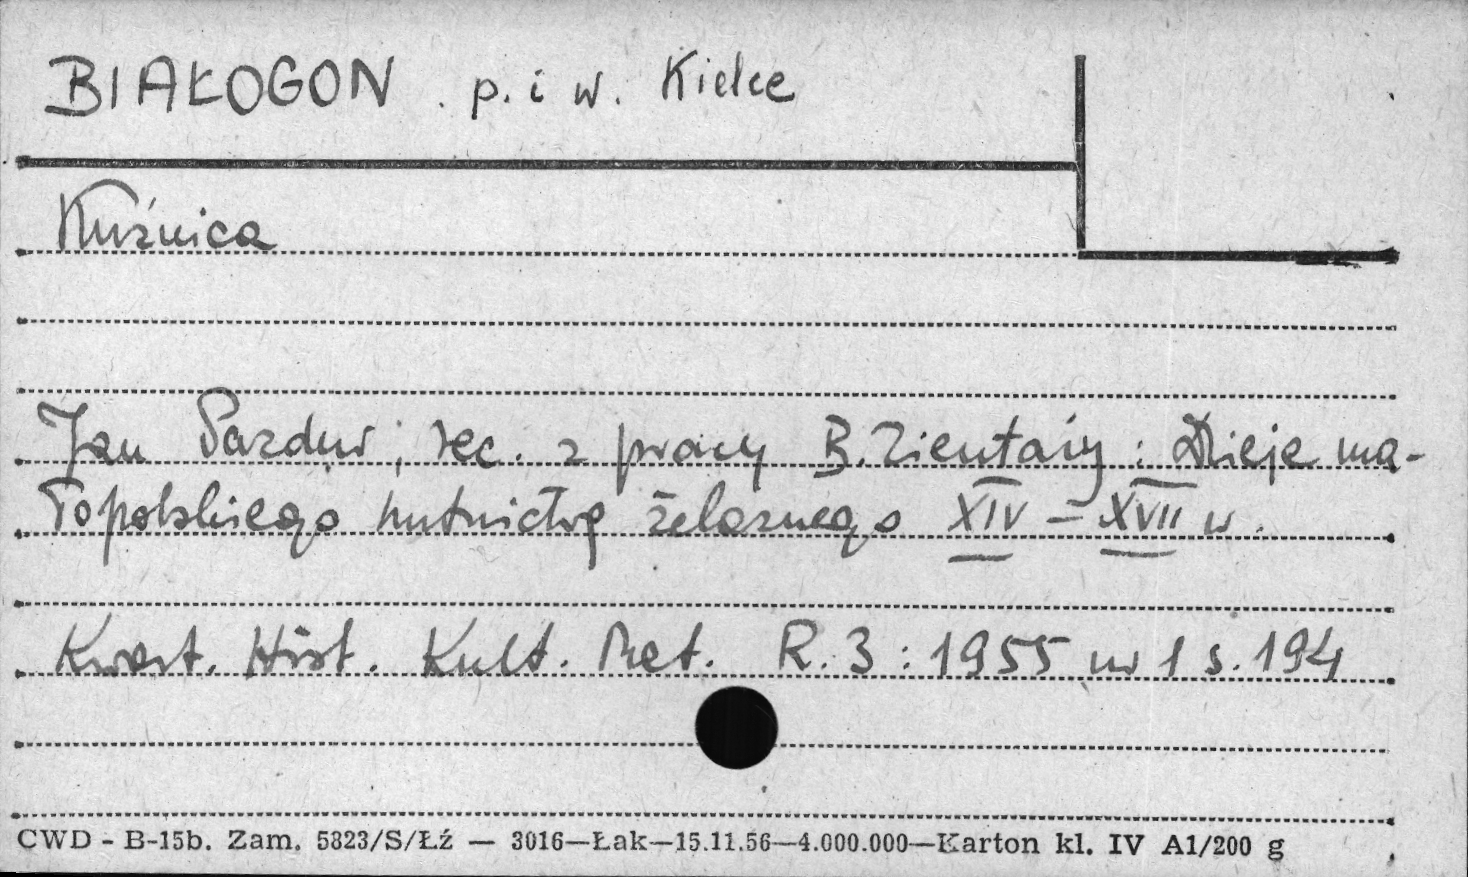 BIAŁOGON . p. i w. Kielce
Kuźnica
Jan Pazdur, rec. z pracy B. Zientary : Dzieje ma-
łopolskiego hutnictwa żelaznego XIV – XVII w.
Kwart. Hist. Kult. Mat. R. 3 : 1955 nr 1 s. 194
CWD - B-15b. Zam. 5823/S/Łź — 3016—Łak—15.11.56—4.000.000—Karton kl. IV A1/200 g